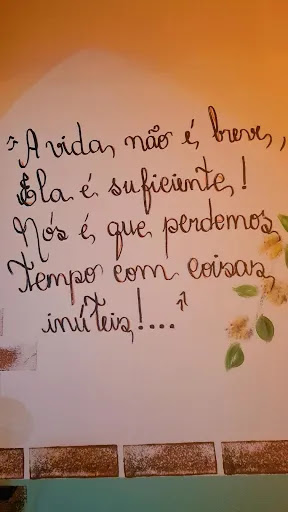 "A vida, não é, breve,
Ela é suficiente,!
Nós é, que perdemos,
tempo com coisas,
inúteis,!...."